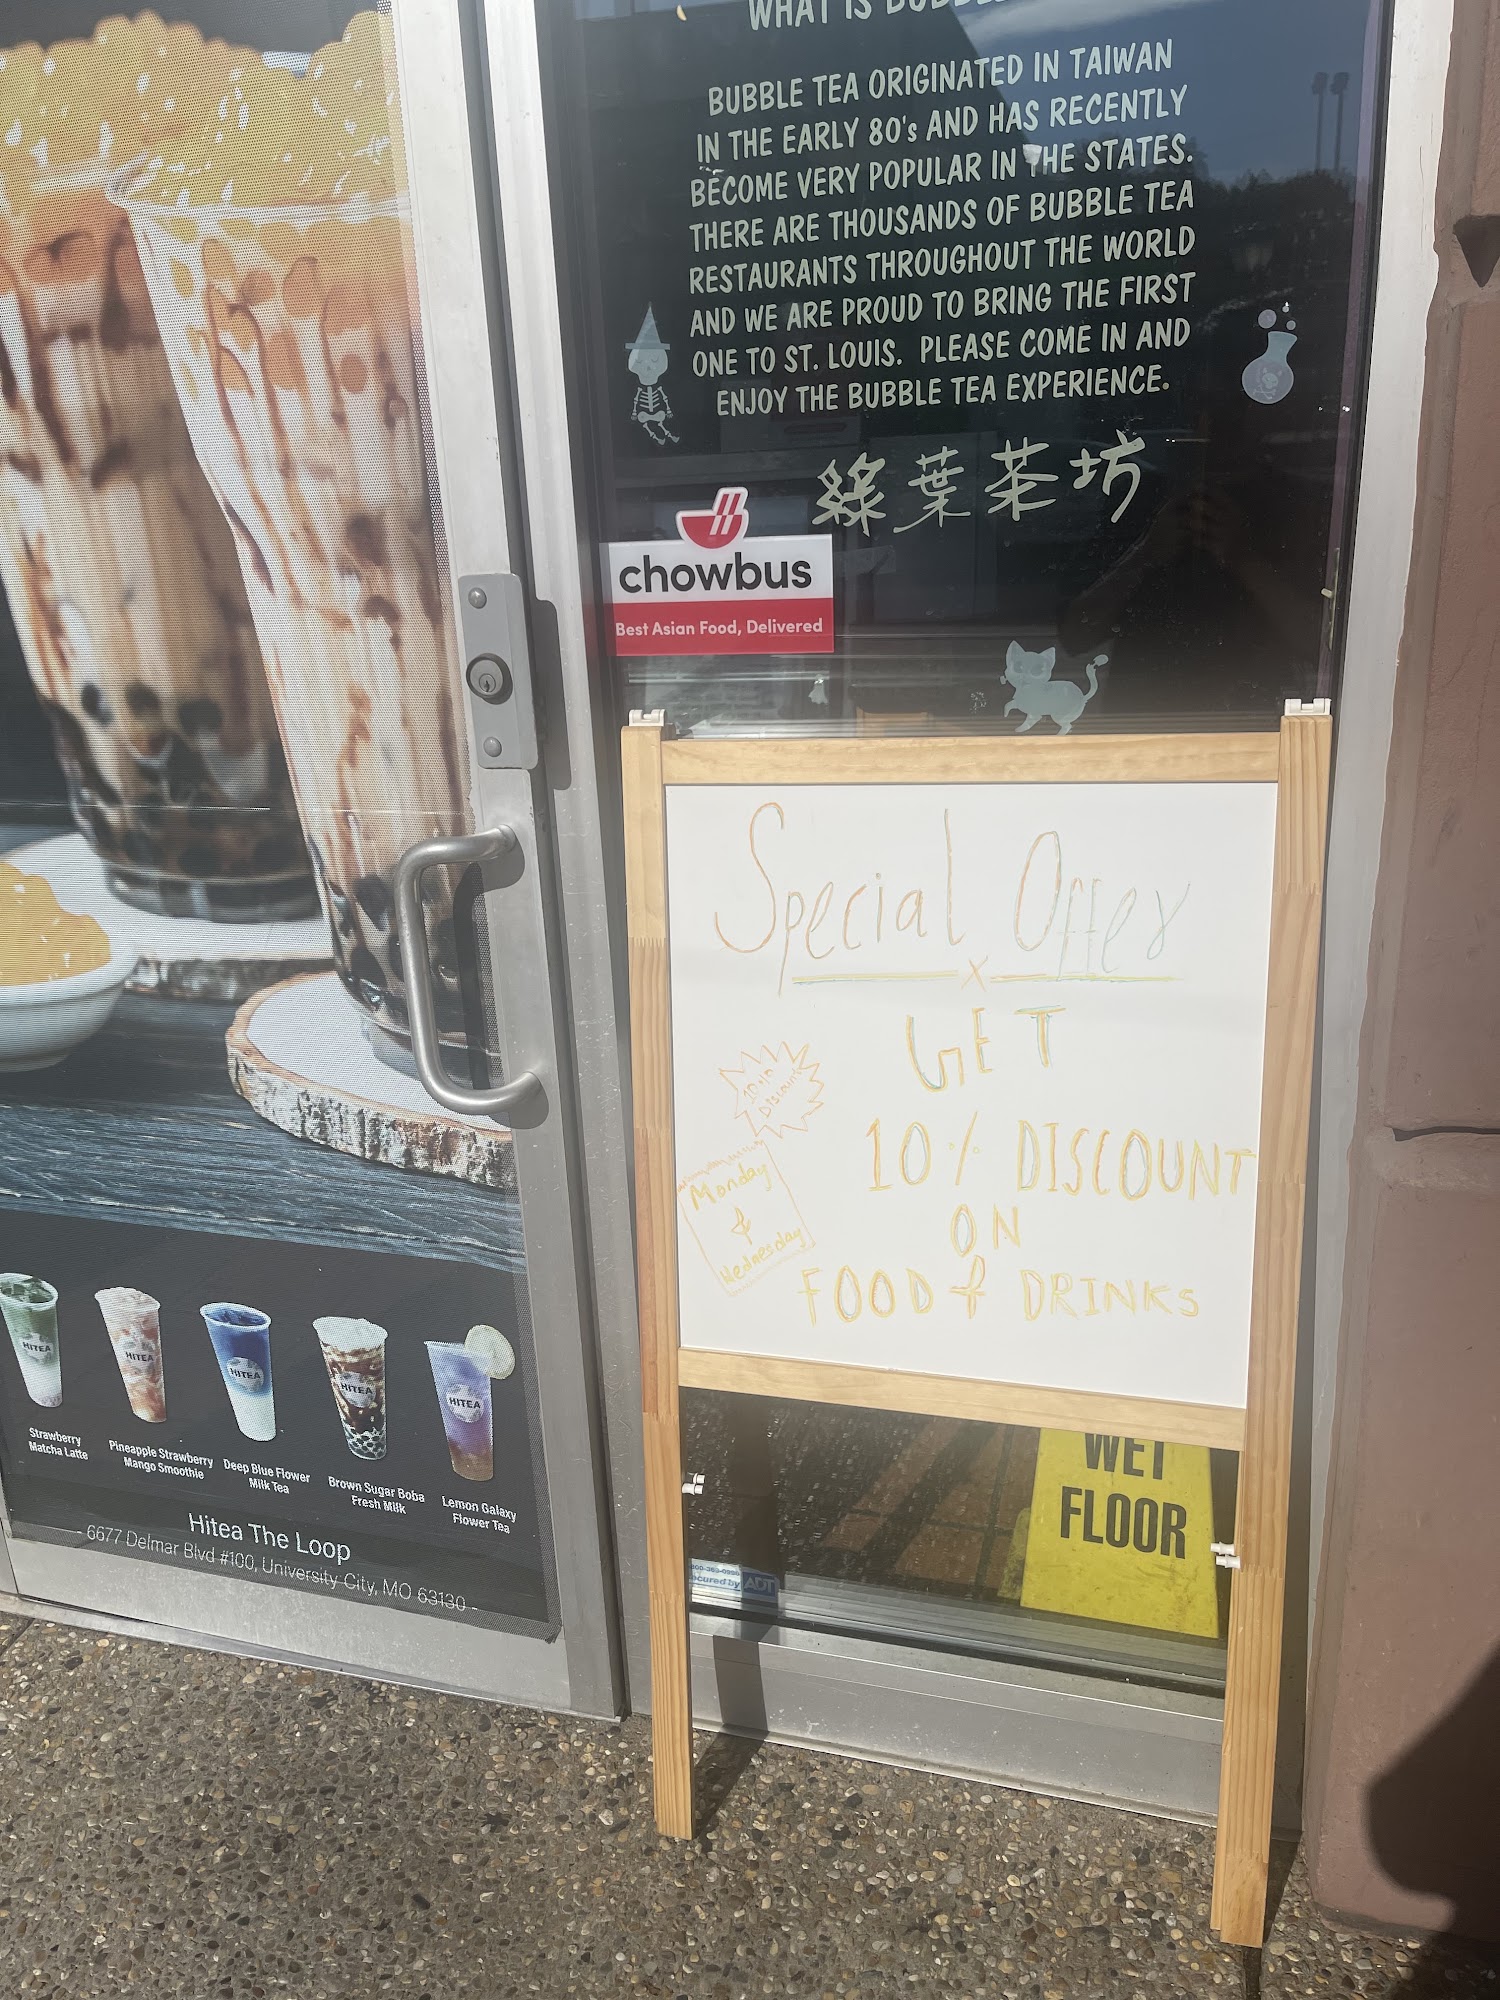 WHAT IS
BUBBLE TEA ORIGINATED IN TAIWAN
IN THE EARLY 80's AND HAS RECENTLY
BECOME VERY POPULAR IN THE STATES.
THERE ARE THOUSANDS OF BUBBLE TEA
RESTAURANTS THROUGHOUT THE WORLD
AND WE ARE PROUD TO BRING THE FIRST
ONE TO ST. LOUIS. PLEASE COME IN AND
ENJOY THE BUBBLE TEA EXPERIENCE.
綠葉茶坊
chowbus
Best Asian Food, Delivered
Special Offer
GET
10% DISCOUNT
ON
FOOD & DRINKS
10%
Discount
Monday
&
Wednesday
WET
FLOOR
800-363-0986
Secured by ADT
HITEA
HITEA
HITEA
HITEA
HITEA
Strawberry
Matcha Latte
Pineapple Strawberry
Mango Smoothie
Deep Blue Flower
Milk Tea
Brown Sugar Boba
Fresh Milk
Lemon Galaxy
Flower Tea
Hitea The Loop
- 6677 Delmar Blvd #100, University City, MO 63130 -